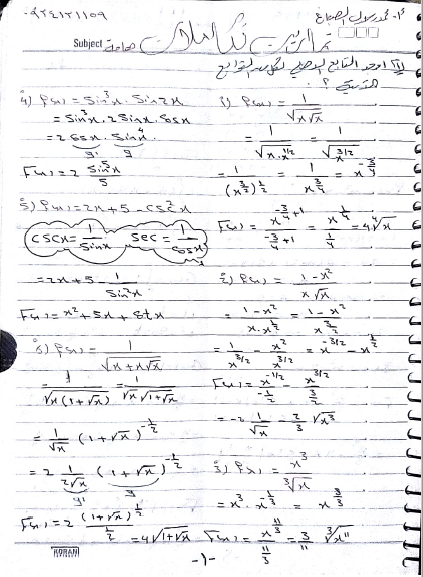 أ. محمد بلال الصباغ
٠٩٣٤١٢١١٥٩
Subject
تمارين تكاملات هامة
أوجد التابع الأصلي لكل من التوابع
1) f(x) = 1/√(x√x)
= 1/√(x·x^(1/2)) = 1/√(x^(3/2))
= 1/(x^(3/2))^(1/2) = 1/x^(3/4) = x^(-3/4)
F(x) = x^(-3/4+1)/(-3/4+1) = x^(1/4)/(1/4) = 4 ⁴√x
2) f(x) = (1-x²)/(x√x)
= (1-x²)/(x·x^(1/2)) = (1-x²)/x^(3/2)
= 1/x^(3/2) - x²/x^(3/2) = x^(-3/2) - x^(1/2)
F(x) = x^(-1/2)/(-1/2) - x^(3/2)/(3/2)
= -2 1/√x - 2/3 √x³
3) f(x) = x³/³√x
= x³·x^(-1/3) = x^(8/3)
F(x) = x^(11/3)/(11/3) = 3/11 ³√x¹¹
4) f(x) = Sin³x · Sin2x
= Sin³x · 2Sinx · Cosx
= 2Cosx · Sin⁴x
g' g
F(x) = 2 Sin⁵x/5
5) f(x) = 2x + 5 - csc²x
cscx = 1/Sinx sec = 1/Cosx
= 2x + 5 - 1/Sin²x
F(x) = x² + 5x + Ctx
6) f(x) = 1/√(x + x√x)
= 1/√(x(1+√x)) = 1/(√x √(1+√x))
= 1/√x (1+√x)^(-1/2)
= 2 1/(2√x) (1+√x)^(-1/2)
g' g
F(x) = 2 (1+√x)^(1/2)/(1/2) = 4√(1+√x)
KORAN
-1-